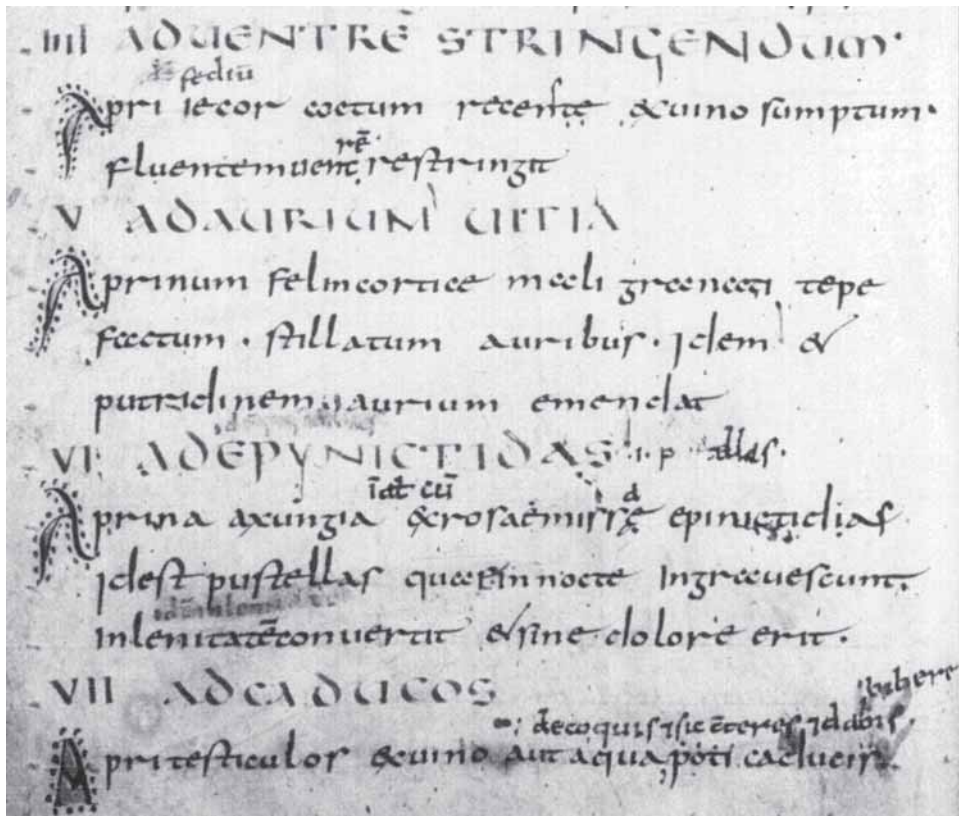 IIII ADUENTRĒ STRINGENDUM·
sediū
Apri iecor coctum recente & uino sumptum·
rē
fluentem uent restringit
V AD AURIUM UITIA
Aprinum fel in cortice mali granati tepe
factum · stillatum auribus · idem &
putridinem aurium emendat
VI AD EPYNICTIDAS .i. p ellas·
cū
d
Aprina axungia & rosa emisse epinictidias
idest pustellas quae in nocte ingrauescunt,
in lenitatē conuertit & sine dolore erit·
VII AD CADUCOS
bibere
decoquis ⁊ sic ēteres ⁊ dabis
Apri testiculos & uino aut aqua poti caducis